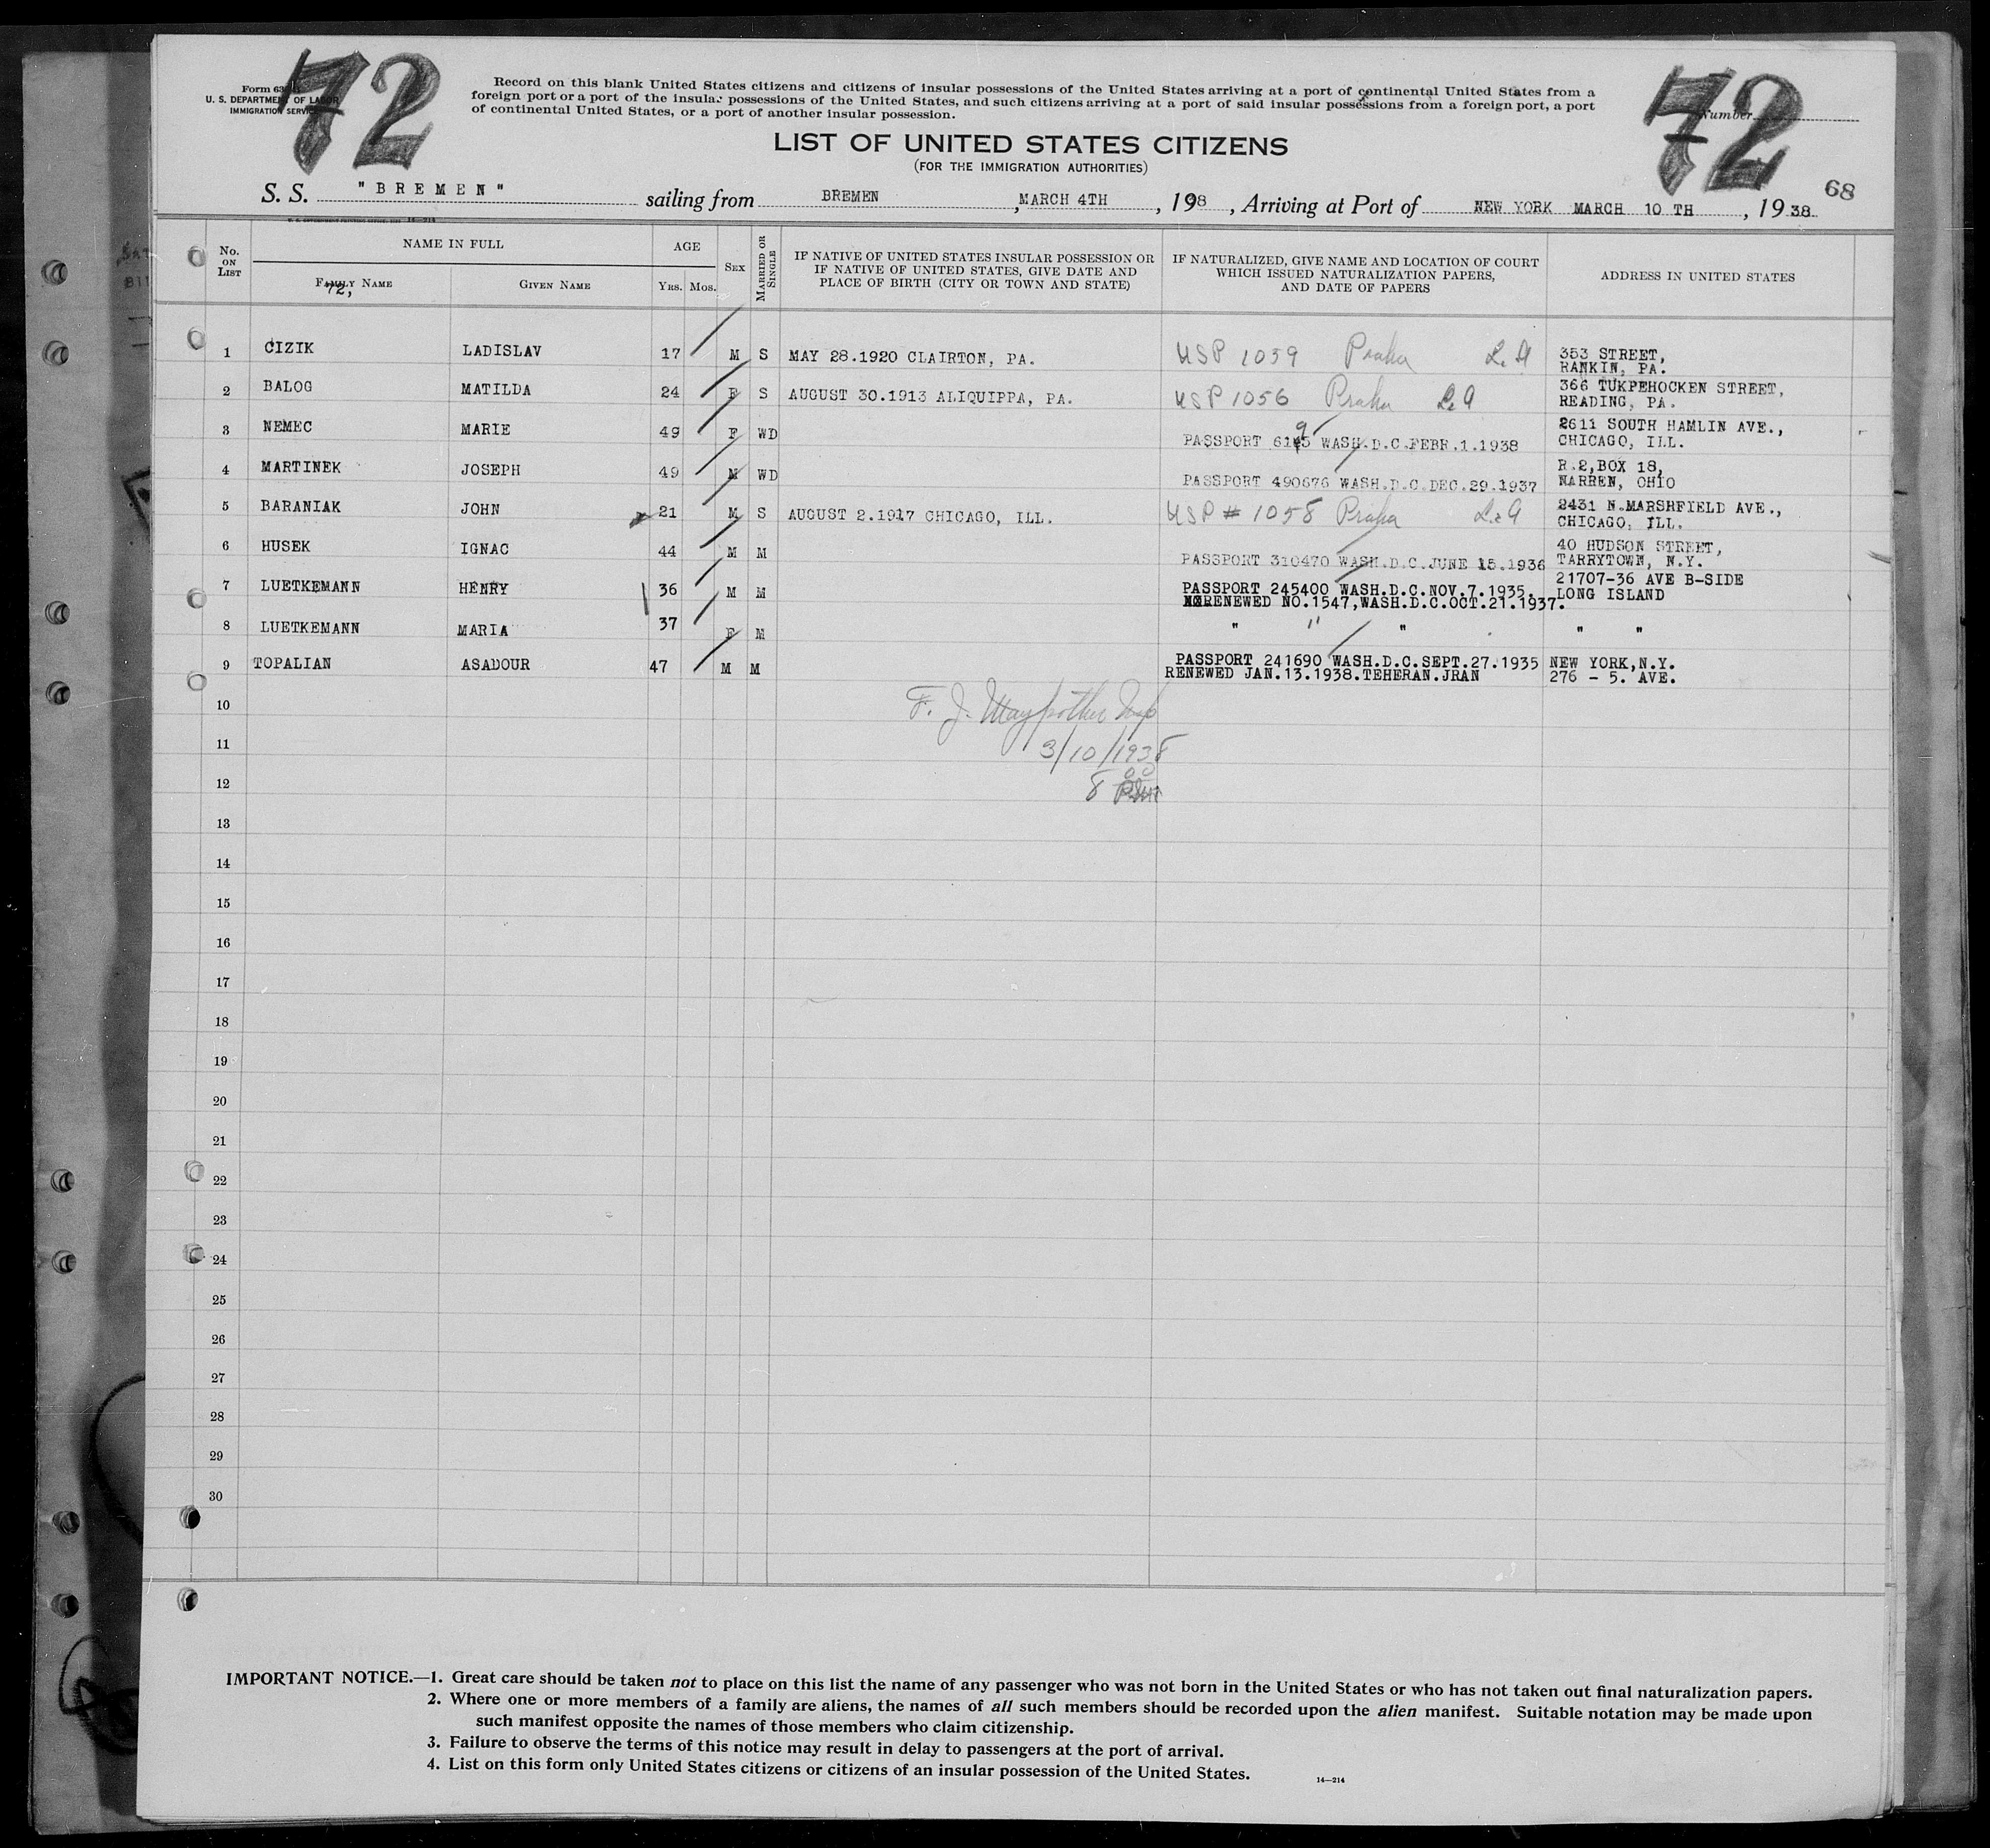 72
72
Form 63
U. S. DEPARTMENT OF LABOR
IMMIGRATION SERVICE
Record on this blank United States citizens and citizens of insular possessions of the United States arriving at a port of continental United States from a
foreign port or a port of the insular possessions of the United States, and such citizens arriving at a port of said insular possessions from a foreign port, a port
of continental United States, or a port of another insular possession.
Number
LIST OF UNITED STATES CITIZENS
(FOR THE IMMIGRATION AUTHORITIES)
68
S. S. "BREMEN" sailing from BREMEN, MARCH 4TH, 198, Arriving at Port of NEW YORK MARCH 10 TH, 1938.
No. ON LIST
NAME IN FULL
FAMILY NAME
72,
GIVEN NAME
AGE
YRS. MOS.
SEX
MARRIED OR SINGLE
IF NATIVE OF UNITED STATES INSULAR POSSESSION OR
IF NATIVE OF UNITED STATES, GIVE DATE AND
PLACE OF BIRTH (CITY OR TOWN AND STATE)
IF NATURALIZED, GIVE NAME AND LOCATION OF COURT
WHICH ISSUED NATURALIZATION PAPERS,
AND DATE OF PAPERS
ADDRESS IN UNITED STATES
1 CIZIK LADISLAV 17 M S MAY 28.1920 CLAIRTON, PA. USP 1059 Praha 353 STREET,
RANKIN, PA.
2 BALOG MATILDA 24 F S AUGUST 30.1913 ALIQUIPPA, PA. USP 1056 Praha 366 TUKPEHOCKEN STREET,
READING, PA.
3 NEMEC MARIE 49 F WD PASSPORT WASH.D.C.FEBR.1.1938 2611 SOUTH HAMLIN AVE.,
CHICAGO, ILL.
4 MARTINEK JOSEPH 49 M WD PASSPORT 490676 WASH.D.C.DEC.29.1937 R.2,BOX 18,
WARREN, OHIO
5 BARANIAK JOHN 21 M S AUGUST 2.1917 CHICAGO, ILL. USP # 1058 Praha 2431 N.MARSHFIELD AVE.,
CHICAGO, ILL.
6 HUSEK IGNAC 44 M M PASSPORT 310470 WASH.D.C.JUNE 15.1936 40 HUDSON STREET,
TARRYTOWN, N.Y.
7 LUETKEMANN HENRY 36 M M PASSPORT 245400 WASH.D.C.NOV.7.1935. 21707-36 AVE B-SIDE
RENEWED NO.1547,WASH.D.C.OCT.21.1937. LONG ISLAND
8 LUETKEMANN MARIA 37 F M " " " " "
9 TOPALIAN ASADOUR 47 M M PASSPORT 241690 WASH.D.C.SEPT.27.1935 NEW YORK,N.Y.
RENEWED JAN.13.1938.TEHERAN.JRAN 276 - 5. AVE.
10
F. J.
11
3/10/1938
12
8 00
13
14
15
16
17
18
19
20
21
22
23
24
25
26
27
28
29
30
IMPORTANT NOTICE.—1. Great care should be taken not to place on this list the name of any passenger who was not born in the United States or who has not taken out final naturalization papers.
2. Where one or more members of a family are aliens, the names of all such members should be recorded upon the alien manifest. Suitable notation may be made upon
such manifest opposite the names of those members who claim citizenship.
3. Failure to observe the terms of this notice may result in delay to passengers at the port of arrival.
4. List on this form only United States citizens or citizens of an insular possession of the United States.
14—214